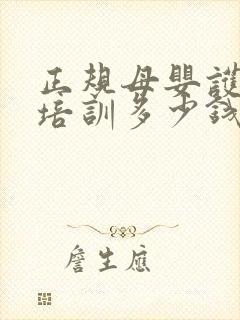 正規母嬰護
培訓多少錢
詹生應